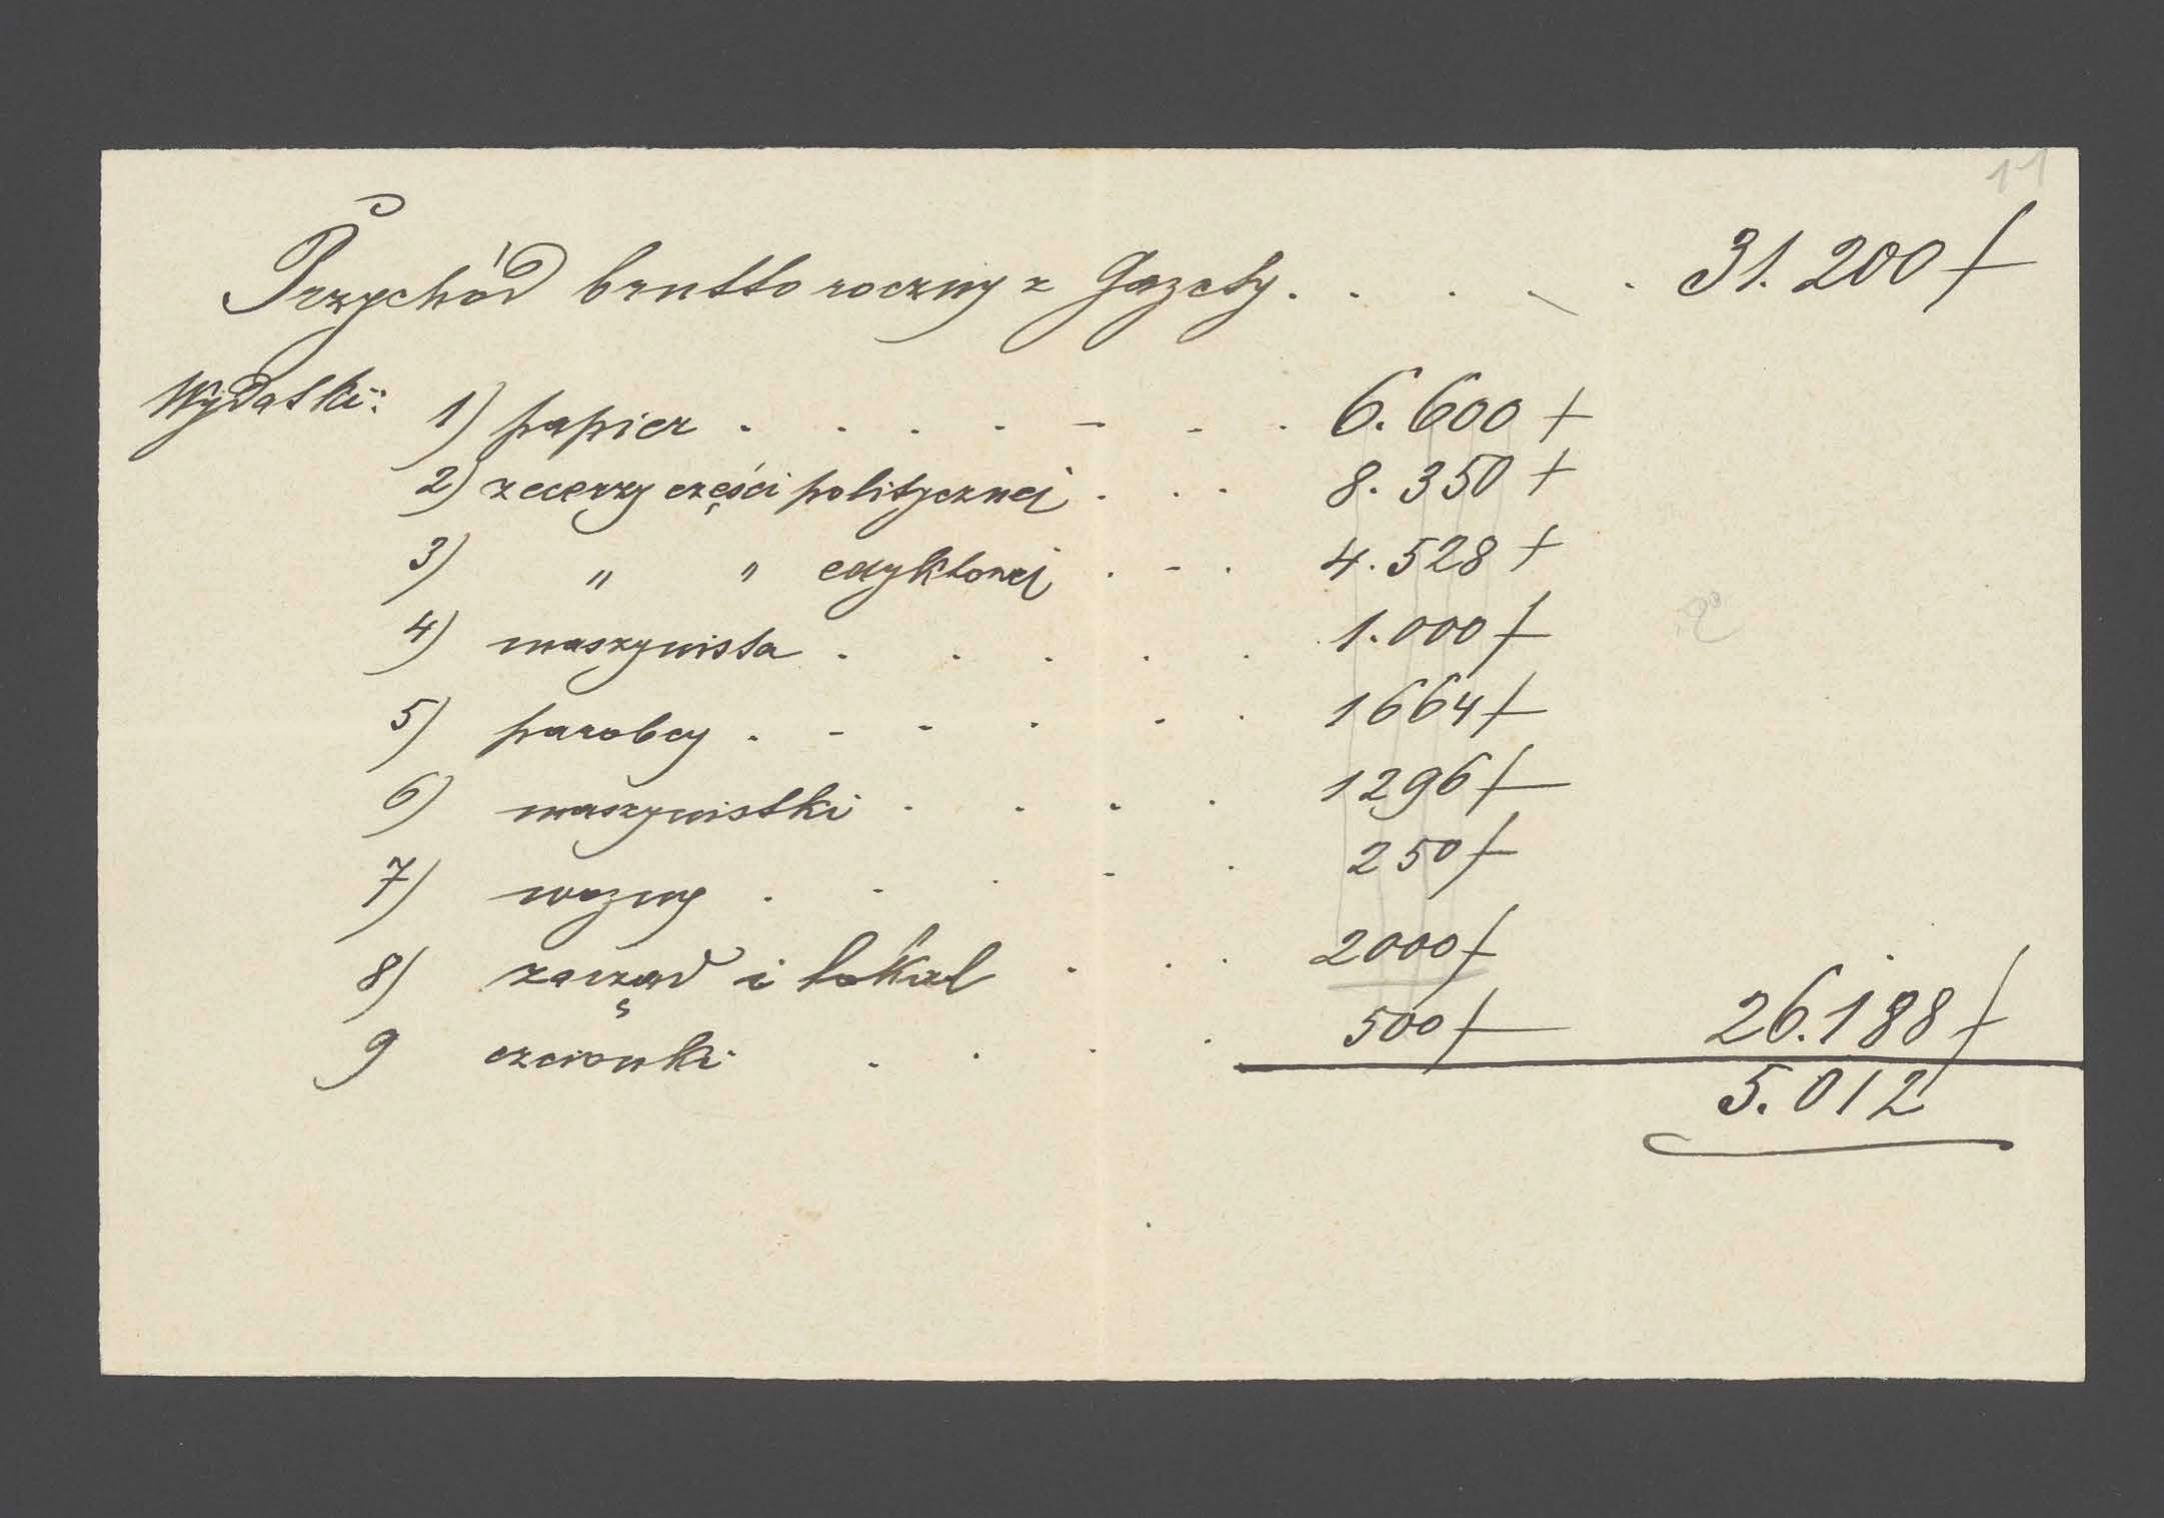 11
Przychód brutto roczny z Gazety. . . . . 31.200 f
Wydatki: 1) papier . . . . - - . 6.600 f
2) zecerzy części politycznej . . . 8.350 f
3) " " edyktowej . - . 4.528 f
4) maszynista . . . . . 1.000 f
5) parobcy . - - . . . 1664 f
6) maszynistki . . . . 1296 f
7) woźny . . . - . 250 f
8) zarząd i lokal . . . 2000 f
9 czcionki . . . . 500 f 26.188 f
5.012